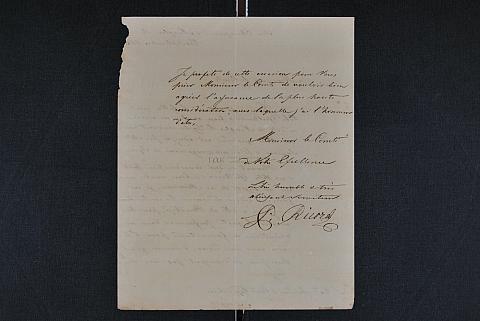 Je profite de cette occasion pour Vous
prier Monsieur le Comte de vouloir bien
agréer l'assurance de la plus haute
considération, avec laquelle j'ai l'honneur
d'être,
Monsieur le Comte
de Votre Excellence
très humble et très
obéissant serviteur
Ricord